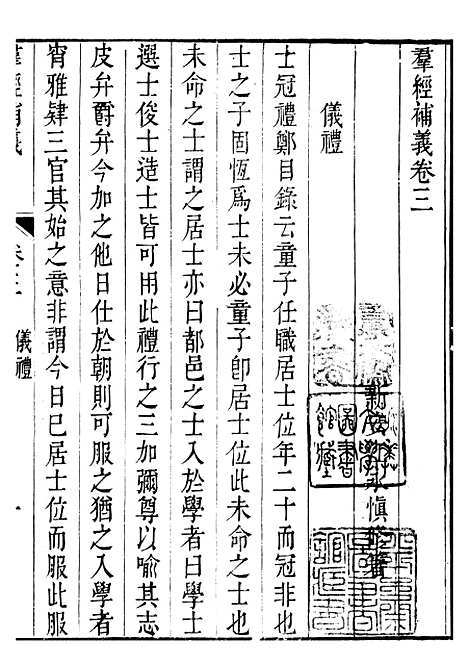 羣經補義卷三
新安 永慎修著
儀禮
士冠禮鄭目錄云童子任職居士位年二十而冠非也
士之子固恆爲士未必童子卽居士位此未命之士也
未命之士謂之居士亦曰都邑之士入於學者曰學士
選士俊士造士皆可用此禮行之三加彌尊以喻其志
皮弁爵弁今加之他日仕於朝則可服之猶之入學者
宵雅肄三官其始之意非謂今日已居士位而服此服
羣經補義
卷三
儀禮
一